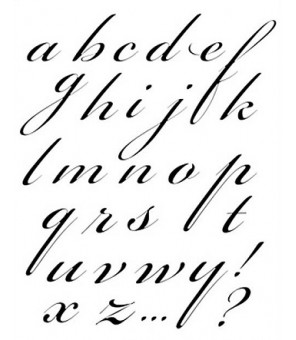 a b c d e f
g h i j k
l m n o p
q r s t
u v w y !
x z ... ?